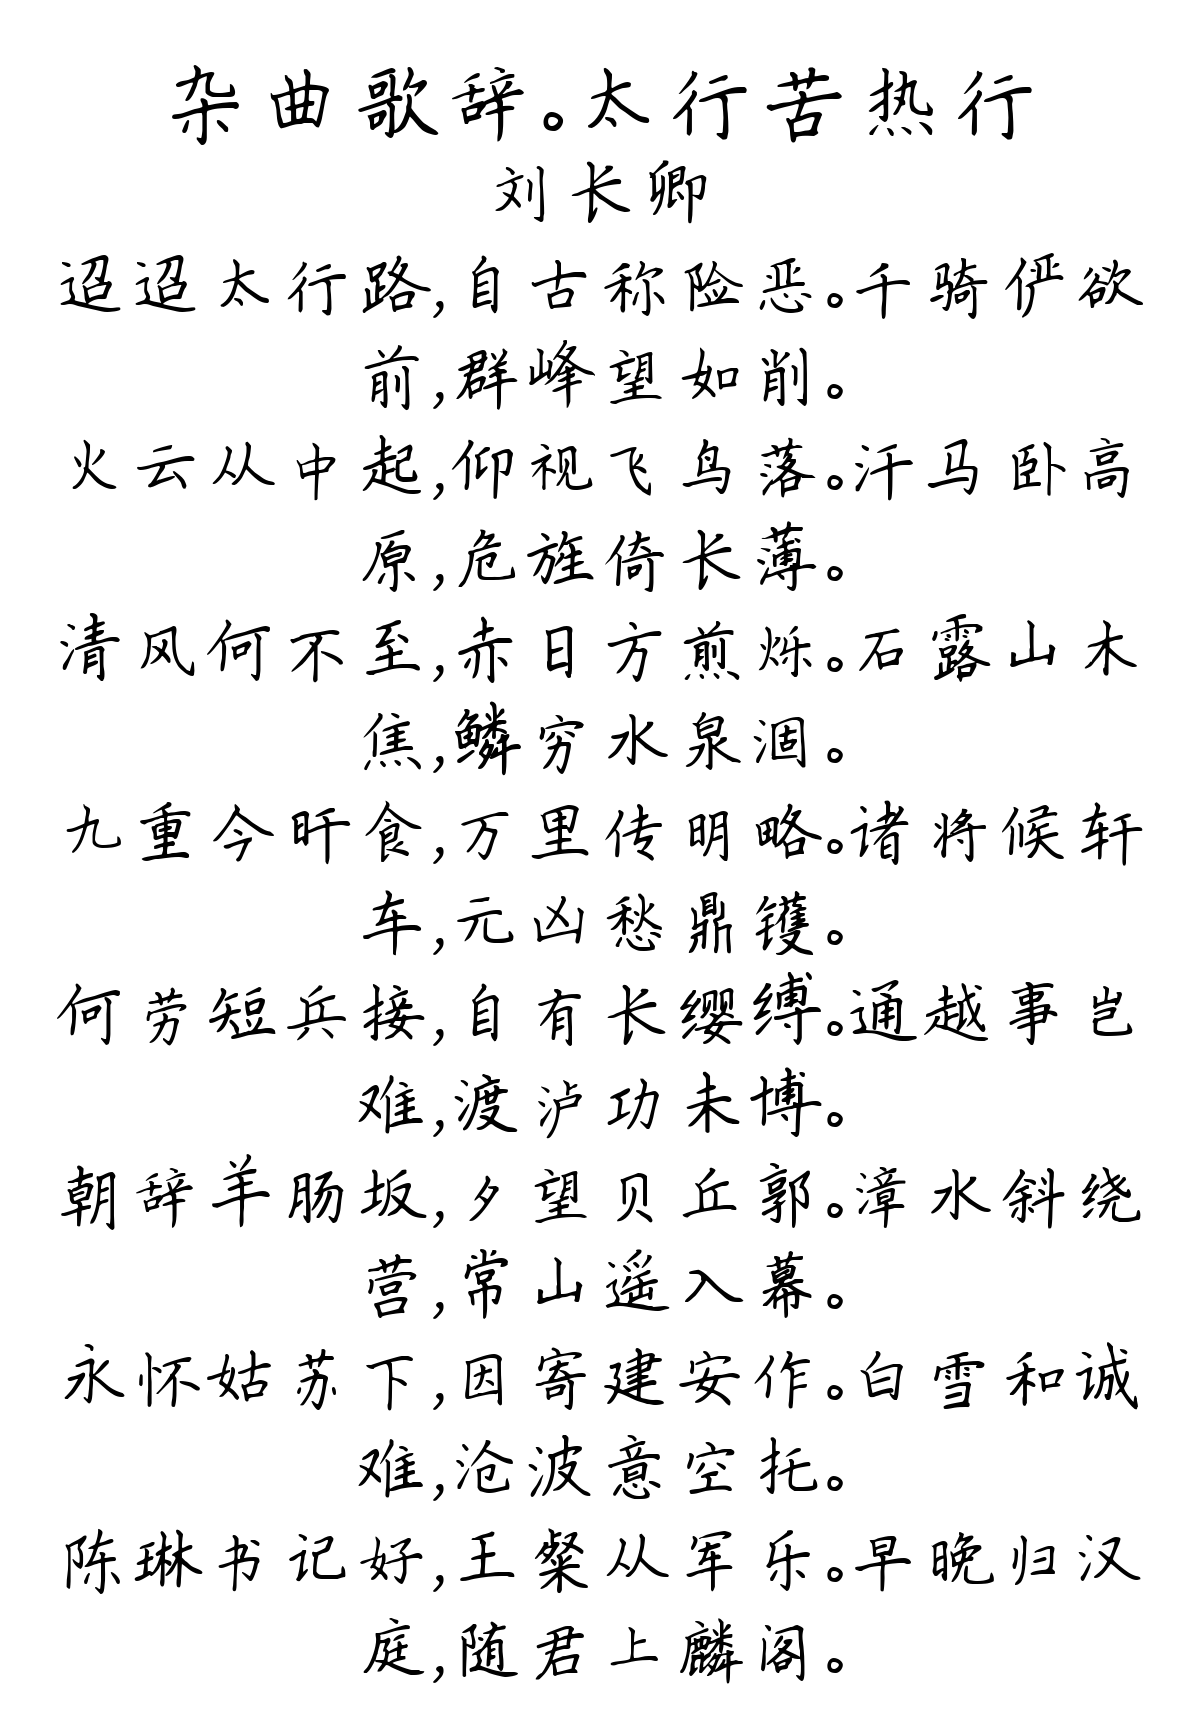 杂曲歌辞。太行苦热行
刘长卿
迢迢太行路,自古称险恶。千骑俨欲
前,群峰望如削。
火云从中起,仰视飞鸟落。汗马卧高
原,危旌倚长薄。
清风何不至,赤日方煎烁。石露山木
焦,鳞穷水泉涸。
九重今旰食,万里传明略。诸将候轩
车,元凶愁鼎镬。
何劳短兵接,自有长缨缚。通越事岂
难,渡泸功未博。
朝辞羊肠坂,夕望贝丘郭。漳水斜绕
营,常山遥入幕。
永怀姑苏下,因寄建安作。白雪和诚
难,沧波意空托。
陈琳书记好,王粲从军乐。早晚归汉
庭,随君上麟阁。